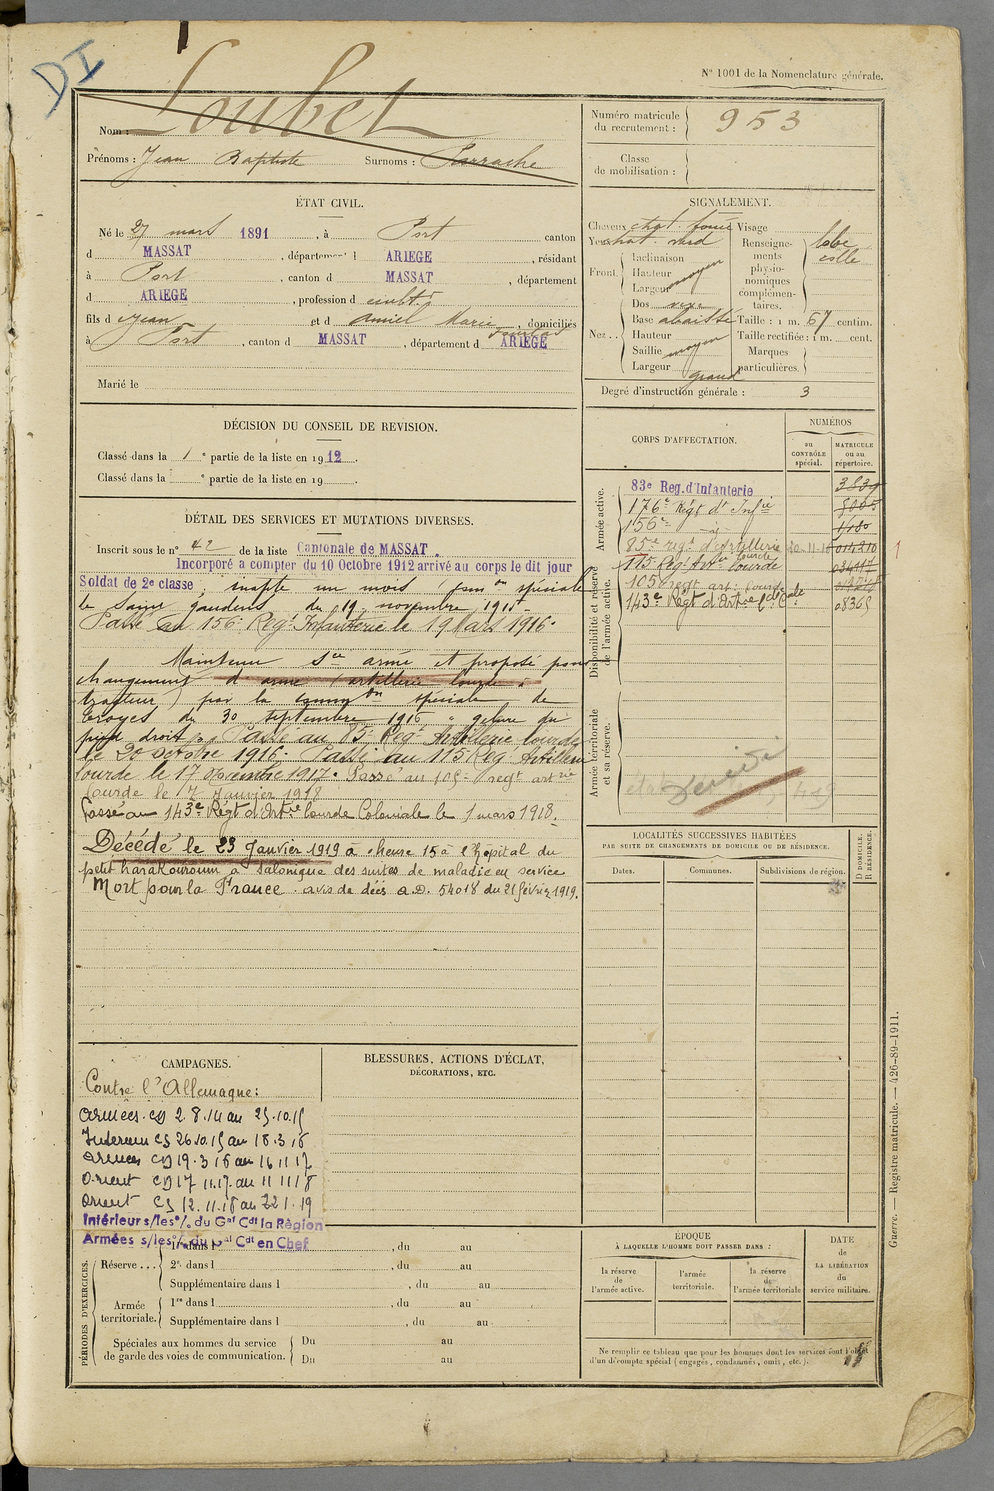 DI
N° 1001 de la Nomenclature générale.
Nom : Loubet
Prénoms : Jean Baptiste Surnoms : Parrache
Numéro matricule du recrutement : 953
Classe de mobilisation :
ÉTAT CIVIL.
Né le 27 mars 1891, à Port canton
d MASSAT, département d ARIEGE, résidant
à Port, canton d MASSAT, département
d ARIEGE, profession d cultr
fils d Jean et d Amiel Marie, domiciliés
à Port, canton d MASSAT, département d ARIEGE
Marié le
SIGNALEMENT.
Cheveux chat. foncé Visage
Yeux chat. verd Renseignements physionomiques complémentaires. lobe collé
Front. Inclinaison
Hauteur moyen
Largeur
Nez. Dos vexe
Base abaissée Taille : 1 m. 67 centim.
Hauteur Taille rectifiée : 1 m. cent.
Saillie moyen Marques particulières.
Largeur grand
Degré d'instruction générale : 3
DÉCISION DU CONSEIL DE REVISION.
Classé dans la 1 e partie de la liste en 1912.
Classé dans la e partie de la liste en 19
CORPS D'AFFECTATION.
NUMÉROS
au CONTRÔLE spécial.
MATRICULE ou au répertoire.
Armée active.
83e Reg. d'Infanterie
176e Régt d'Infie
156e id
85e regt d'Artillerie lourde
115 Régt Artie lourde
Disponibilité et réserve de l'armée active.
105 regt art. lourde
143e Régt d'Artie lde Cale 08365
Armée territoriale et sa réserve.
DÉTAIL DES SERVICES ET MUTATIONS DIVERSES.
Inscrit sous le n° 42 de la liste Cantonale de MASSAT.
Incorporé a compter du 10 Octobre 1912 arrivé au corps le dit jour
Soldat de 2e classe, inapte un mois Comon spéciale
de Saint Gaudens du 19 novembre 1915
Passé au 156e Regt Infanterie le 19 Mars 1916.
Maintenu sce armé et proposé pour
changement d'arme (artillerie lourde à
tracteur) par la common spéciale de
Troyes du 30 septembre 1916 "gelure du
pied droit" Passé au 85e Regt Artillerie lourde
le 20 Octobre 1916. Passé au 115 Reg Artillerie
lourde le 17 Novembre 1917. Passé au 105e regt artrie
lourde le 7 Janvier 1918
Passé au 143e Régt d'Artie lourde Coloniale le 1 mars 1918.
Décédé le 23 Janvier 1919 à heure 15 à l'hôpital du
petit harakouroum à Salonique des suites de maladie en service
Mort pour la France. avis de décès a.D. 54018 du 21 février 1919.
LOCALITÉS SUCCESSIVES HABITÉES
PAR SUITE DE CHANGEMENTS DE DOMICILE OU DE RÉSIDENCE.
Dates.
Communes.
Subdivisions de région.
D DOMICILE.
R RÉSIDENCE.
CAMPAGNES.
Contre l'Allemagne :
Armées CD 2.8.14 au 25.10.15
Interieur CS 26.10.15 au 18.3.16
Armées CD 19.3.16 au 16 11 17
Orient CD 17.11.17 au 11 11 18
Orient CS 12.11.18 au 22.1.19
Intérieur s/les % du Gal Cdt la Région
Armées s/les % du Gal Cdt en Chef
BLESSURES, ACTIONS D'ÉCLAT,
DÉCORATIONS, ETC.
PÉRIODES D'EXERCICES.
Réserve... 1re dans l , du au
2e dans l , du au
Supplémentaire dans l , du au
Armée territoriale. 1re dans l , du au
Supplémentaire dans l , du au
Spéciales aux hommes du service de garde des voies de communication. Du au
Du au
ÉPOQUE
À LAQUELLE L'HOMME DOIT PASSER DANS :
la réserve de l'armée active.
l'armée territoriale.
la réserve de l'armée territoriale
DATE de LA LIBÉRATION du service militaire.
Ne remplir ce tableau que pour les hommes dont les services font l'objet
d'un décompte spécial (engagés, condamnés, omis, etc.).
Guerre. — Registre matricule. — 426-89-1911.